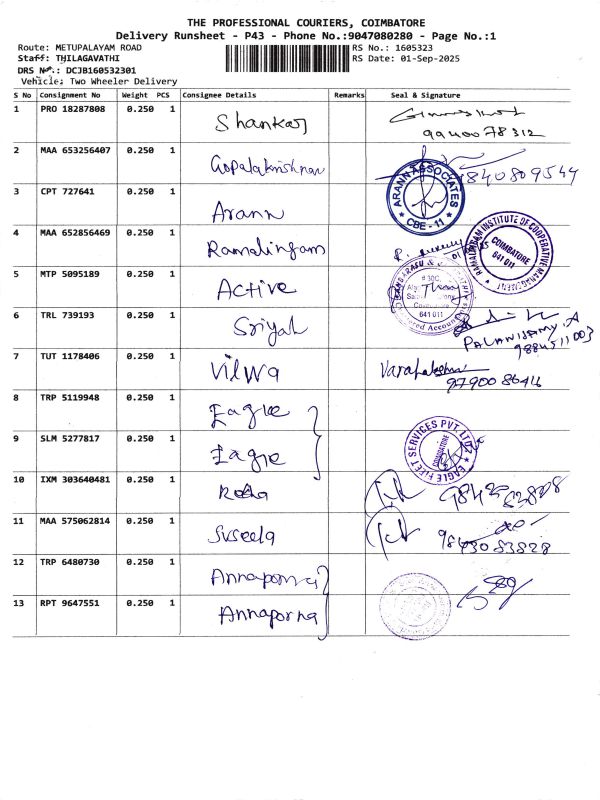 THE PROFESSIONAL COURIERS, COIMBATORE
Delivery Runsheet - P43 - Phone No.:9047080280 - Page No.:1
Route: METUPALAYAM ROAD
RS No.: 1605323
Staff: THILAGAVATHI
RS Date: 01-Sep-2025
DRS No.: DCJB160532301
Vehicle: Two Wheeler Delivery
S No Consignment No Weight PCS Consignee Details Remarks Seal & Signature
1 PRO 18287808 0.250 1 Shankar
9940078312
2 MAA 653256407 0.250 1 Gopalakrishnan 9840809544
ARANN ASSOCIATES
CBE - 11
3 CPT 727641 0.250 1 Arann
4 MAA 652856469 0.250 1 Ramalingam
RAMALINGAM INSTITUTE OF COOPERATIVE MANAGEMENT
COIMBATORE
641 011
5 MTP 5095189 0.250 1 Active
Coimbatore
641 011
Chartered Accountants
6 TRL 739193 0.250 1 Sriyah
PALANISAMY.A
9884511003
7 TUT 1178406 0.250 1 Vilwa
9790086416
8 TRP 5119948 0.250 1 Eagle
9 SLM 5277817 0.250 1 Eagle
EAGLE FLEET SERVICES PVT. LTD.
COIMBATORE
10 IXM 303640481 0.250 1
11 MAA 575062814 0.250 1 Suseela
9843083828
12 TRP 6480730 0.250 1 Annaporna
13 RPT 9647551 0.250 1 Annaporna